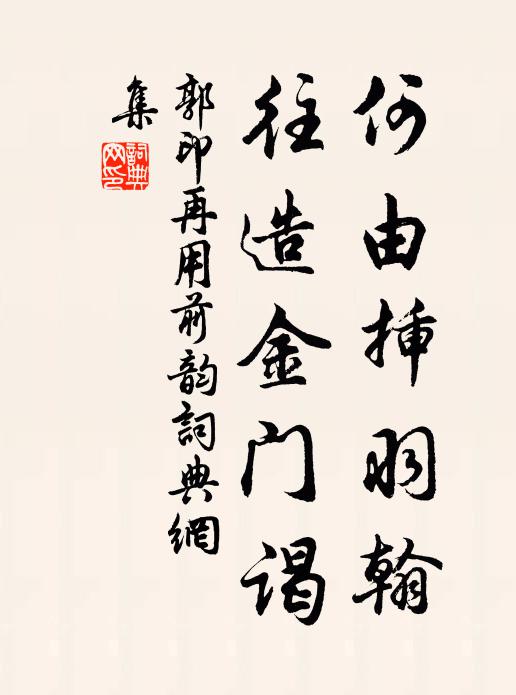 何由揷羽翰
往造金门谒
郭印再用前韵詞典網
集
詞典
网印